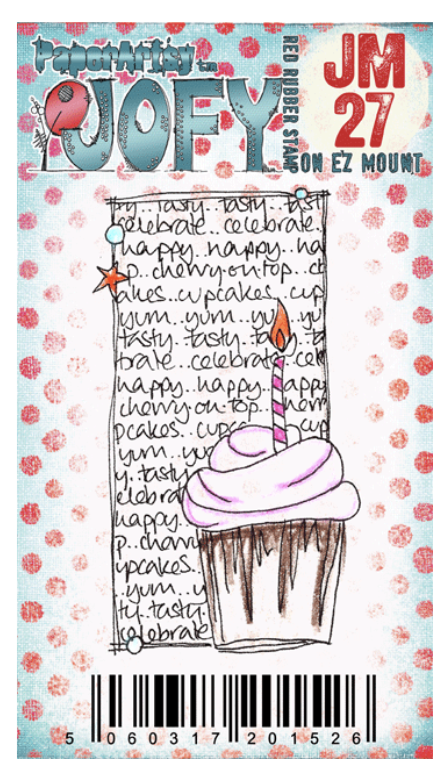 PaperArtsy™
JOFY
RED RUBBER STAMP
JM
27
ON EZ MOUNT
ty..Tasty..Tasty..Tast
celebrate..celebrate.
happy..happy..ha
p..cherry.on.top..ch
akes..cupcakes..cup
yum..yum..yu
tasty..tasty..ta
brate..celebrate..cele
happy..happy..happy
cherry.on.top..cherr
pcakes..cupc cup
yum..yu
y..tasty
elebrat
happy.
p..cherr
upcakes..
.yum..y
ty..tasty.
celebrate
5 060317 201526